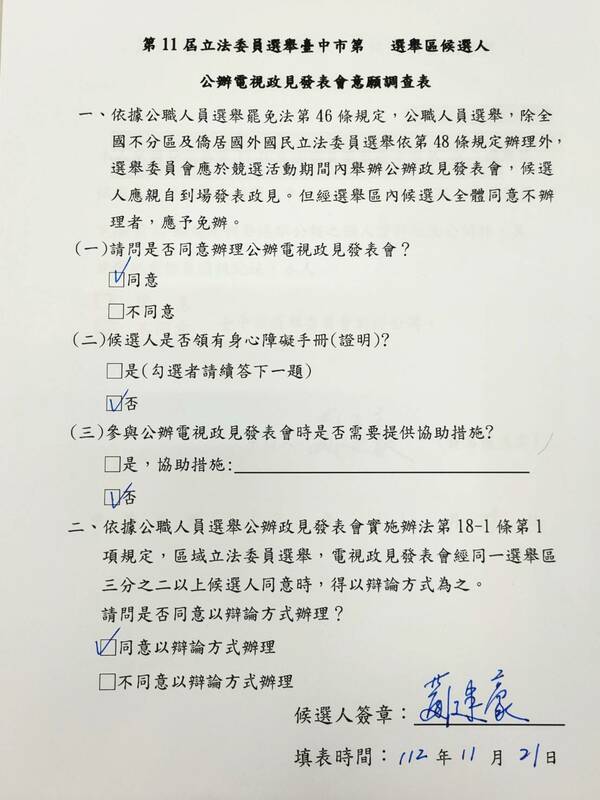 第11屆立法委員選舉臺中市第　選舉區候選人
公辦電視政見發表會意願調查表
一、依據公職人員選舉罷免法第46條規定，公職人員選舉，除全
國不分區及僑居國外國民立法委員選舉依第48條規定辦理外，
選舉委員會應於競選活動期間內舉辦公辦政見發表會，候選
人應親自到場發表政見。但經選舉區內候選人全體同意不辦
理者，應予免辦。
(一)請問是否同意辦理公辦電視政見發表會？
☑同意
□不同意
(二)候選人是否領有身心障礙手冊(證明)?
□是(勾選者請續答下一題)
☑否
(三)參與公辦電視政見發表會時是否需要提供協助措施?
□是，協助措施:
☑否
二、依據公職人員選舉公辦政見發表會實施辦法第18-1條第1
項規定，區域立法委員選舉，電視政見發表會經同一選舉區
三分之二以上候選人同意時，得以辯論方式為之。
請問是否同意以辯論方式辦理？
☑同意以辯論方式辦理
□不同意以辯論方式辦理
候選人簽章：
填表時間：112年11月21日